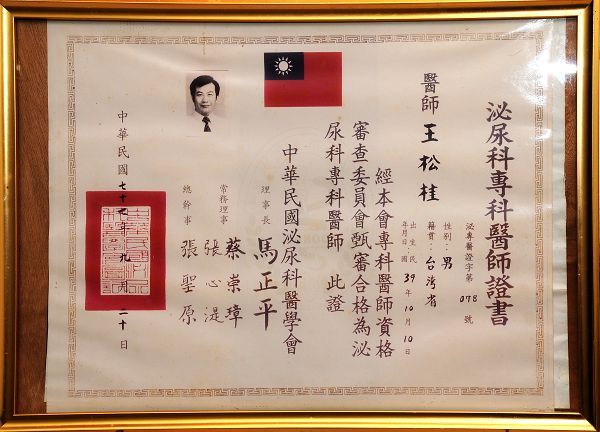 泌尿科專科醫師證書
泌專醫證字第 078 號
醫師 王松桂
性別：男
籍貫：台灣省
出生民國
年月日：39年10月10日
經本會專科醫師資格
審查委員會甄審合格為泌
尿科專科醫師 此證
中華民國泌尿科醫學會
理事長 馬正平
常務理事 蔡崇璋
張心湜
總幹事 張聖原
中華民國七十七年九月二十日